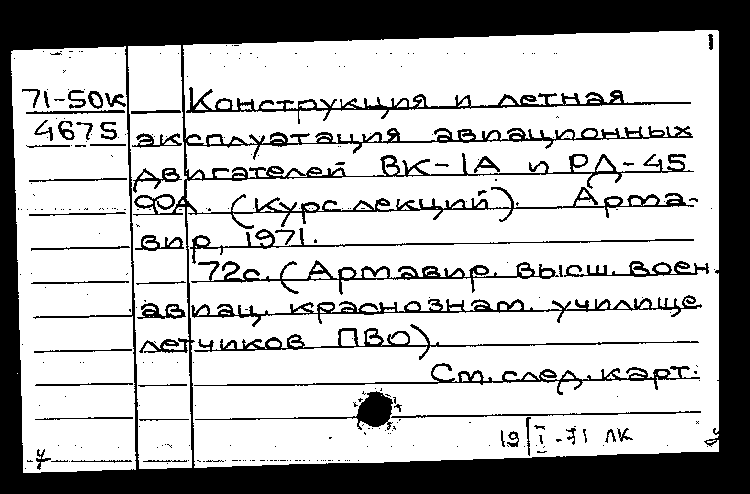 1
71-50к Конструкция и летная
4675 эксплуатация авиационных
двигателей ВК-1А и РД-45
ФА. (Курс лекций). Арма-
вир, 1971.
72с. (Армавир. высш. воен.
авиац. краснознам. училище
летчиков ПВО).
См. след. карт.
19/I-71 ЛК